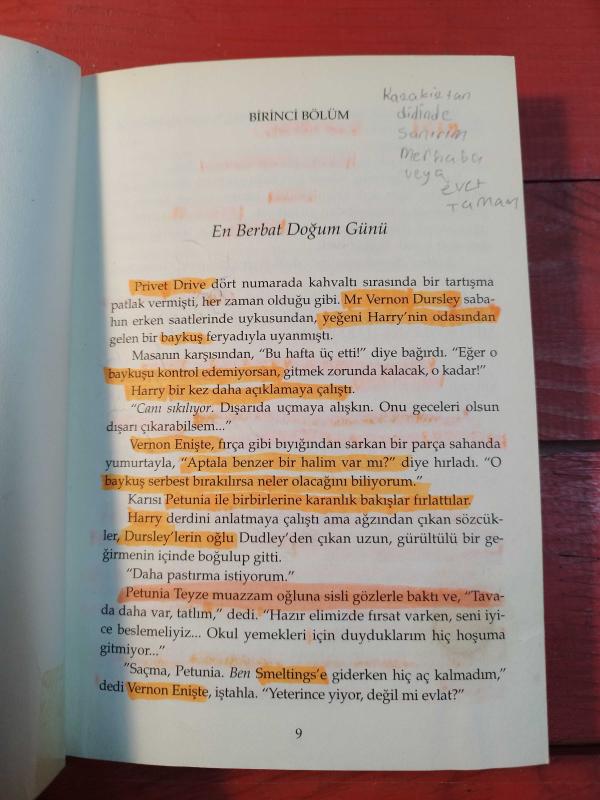 Kazakistan
dilinde
sanırım
merhaba
veya
evet
tamam
BİRİNCİ BÖLÜM
En Berbat Doğum Günü
Privet Drive dört numarada kahvaltı sırasında bir tartışma
patlak vermişti, her zaman olduğu gibi. Mr Vernon Dursley saba-
hın erken saatlerinde uykusundan, yeğeni Harry'nin odasından
gelen bir baykuş feryadıyla uyanmıştı.
Masanın karşısından, "Bu hafta üç etti!" diye bağırdı. "Eğer o
baykuşu kontrol edemiyorsan, gitmek zorunda kalacak, o kadar!"
Harry bir kez daha açıklamaya çalıştı.
"Canı sıkılıyor. Dışarıda uçmaya alışkın. Onu geceleri olsun
dışarı çıkarabilsem..."
Vernon Enişte, fırça gibi bıyığından sarkan bir parça sahanda
yumurtayla, "Aptala benzer bir halim var mı?" diye hırladı. "O
baykuş serbest bırakılırsa neler olacağını biliyorum."
Karısı Petunia ile birbirlerine karanlık bakışlar fırlattılar.
Harry derdini anlatmaya çalıştı ama ağzından çıkan sözcük-
ler, Dursley'lerin oğlu Dudley'den çıkan uzun, gürültülü bir ge-
ğirmenin içinde boğulup gitti.
"Daha pastırma istiyorum."
Petunia Teyze muazzam oğluna sisli gözlerle baktı ve, "Tava-
da daha var, tatlım," dedi. "Hazır elimizde fırsat varken, seni iyi-
ce beslemeliyiz... Okul yemekleri için duyduklarım hiç hoşuma
gitmiyor..."
"Saçma, Petunia. Ben Smeltings'e giderken hiç aç kalmadım,"
dedi Vernon Enişte, iştahla. "Yeterince yiyor, değil mi evlat?"
9